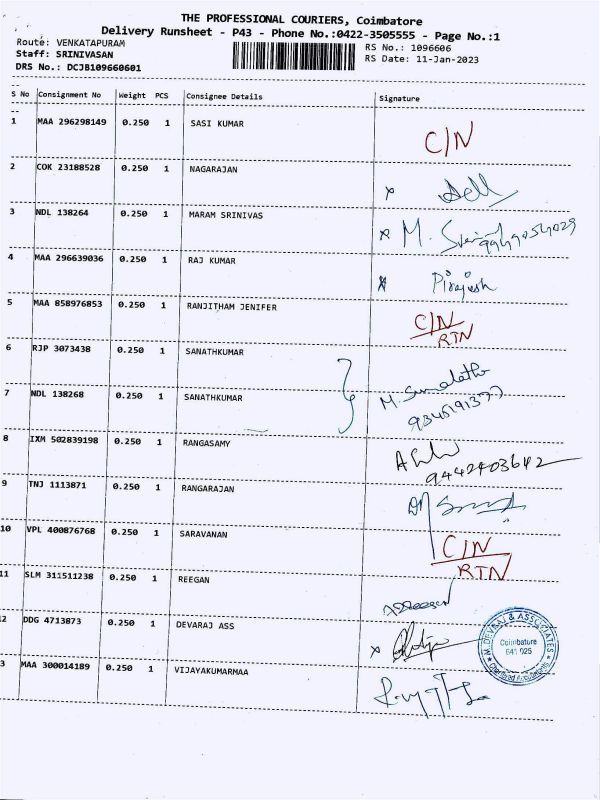 THE PROFESSIONAL COURIERS, Coimbatore
Delivery Runsheet - P43 - Phone No.:0422-3505555 - Page No.:1
Route: VENKATAPURAM
Staff: SRINIVASAN
DRS No.: DCJB109660601
RS No.: 1096606
RS Date: 11-Jan-2023
S No Consignment No Weight PCS Consignee Details Signature
1 MAA 296298149 0.250 1 SASI KUMAR C/N
2 COK 23188528 0.250 1 NAGARAJAN
3 NDL 138264 0.250 1 MARAM SRINIVAS M.
4 MAA 296639036 0.250 1 RAJ KUMAR
5 MAA 858976853 0.250 1 RANJITHAM JENIFER C/N
RTN
6 RJP 3073438 0.250 1 SANATHKUMAR
7 NDL 138268 0.250 1 SANATHKUMAR M. Sumalatha
8 IXM 502839198 0.250 1 RANGASAMY
9442403642
9 TNJ 1113871 0.250 1 RANGARAJAN
10 VPL 400876768 0.250 1 SARAVANAN C/N
RTN
11 SLM 311511238 0.250 1 REEGAN
2 DDG 4713873 0.250 1 DEVARAJ ASS
M.DEVARAJ & ASSOCIATES
Coimbatore
641 025
Chartered Accountants
3 MAA 300014189 0.250 1 VIJAYAKUMARMAA